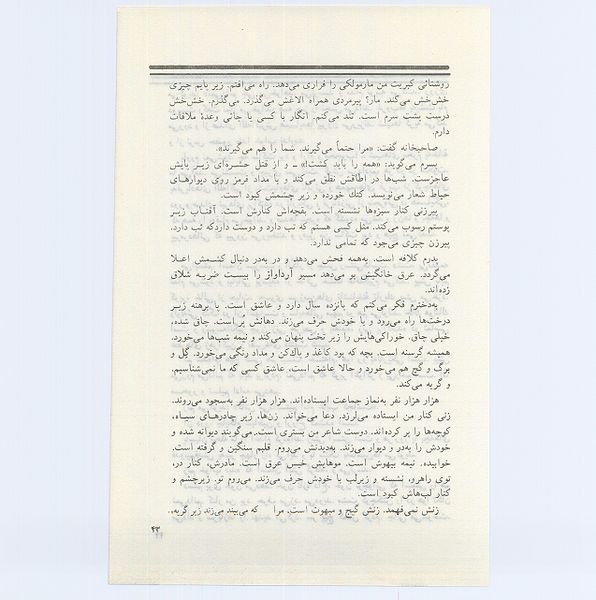 روشنائی کبریت من مارمولکی را فراری می‌دهد. راه می‌افتم. زیر پایم چیزی
خش‌خش می‌کند. مار؟ پیرمردی همراه الاغش می‌گذرد. می‌گذرم. خش‌خش
درست پشت سرم است. تند می‌کنم. انگار با کسی یا جائی وعدهٔ ملاقات
دارم.
صاحبخانه گفت: «مرا حتماً می‌گیرند. شما را هم می‌گیرند».
پسرم می‌گوید: «همه را باید کشت!» ـ و از قتل حشره‌ای زیر پایش
عاجزست. شب‌ها در اطاقش نطق می‌کند و با مداد قرمز روی دیوارهای
حیاط شعار می‌نویسد. کتك خورده و زیر چشمش کبود است.
پیرزنی کنار سبزه‌ها نشسته است. بقچه‌اش کنارش است. آفتاب زیر
پوستم رسوب می‌کند. مثل کسی هستم که تب دارد و دوست داردکه تب دارد.
پیرزن چیزی می‌جود که تمامی ندارد.
پدرم کلافه است. به‌همه فحش می‌دهد و در به‌در دنبال کشمش اعلا
می‌گردد. عرق خانگیش بو می‌دهد مسیو آرداواز را بیست ضربه شلاق
زده‌اند.
به‌دخترم فکر می‌کنم که پانزده سال دارد و عاشق است. پا برهنه زیر
درخت‌ها راه می‌رود و با خودش حرف می‌زند. دهانش پُر است. چاق شده،
خیلی چاق. خوراکی‌هایش را زیر تخت پنهان می‌کند و نیمه شب‌ها می‌خورد.
همیشه گرسنه است. بچه که بود کاغذ و پاك‌کن و مداد رنگی می‌خورد. گِل و
برگ و گچ هم می‌خورد و حالا عاشق است. عاشق کسی که ما نمی‌شناسیم.
و گریه می‌کند.
هزار هزار نفر به‌نماز جماعت ایستاده‌اند. هزار هزار نفر به‌سجود می‌روند.
زنی کنار من ایستاده می‌لرزد. دعا می‌خواند. زن‌ها، زیر چادرهای سیاه،
کوچه‌ها را پر کرده‌اند. دوست شاعر من بستری است. می‌گویند دیوانه شده و
خودش را به‌در و دیوار می‌زند. به‌دیدنش می‌روم. قلبم سنگین و گرفته است.
خوابیده. نیمه بیهوش است. موهایش خیس عرق است. مادرش، کنار در،
توی راهرو، نشسته و زیرلب با خودش حرف می‌زند. می‌روم تو. زیرچشم و
کنار لب‌هاش کبود است.
زنش نمی‌فهمد. زنش گیج و مبهوت است. مرا که می‌بیند می‌زند زیر گریه.
۴۳